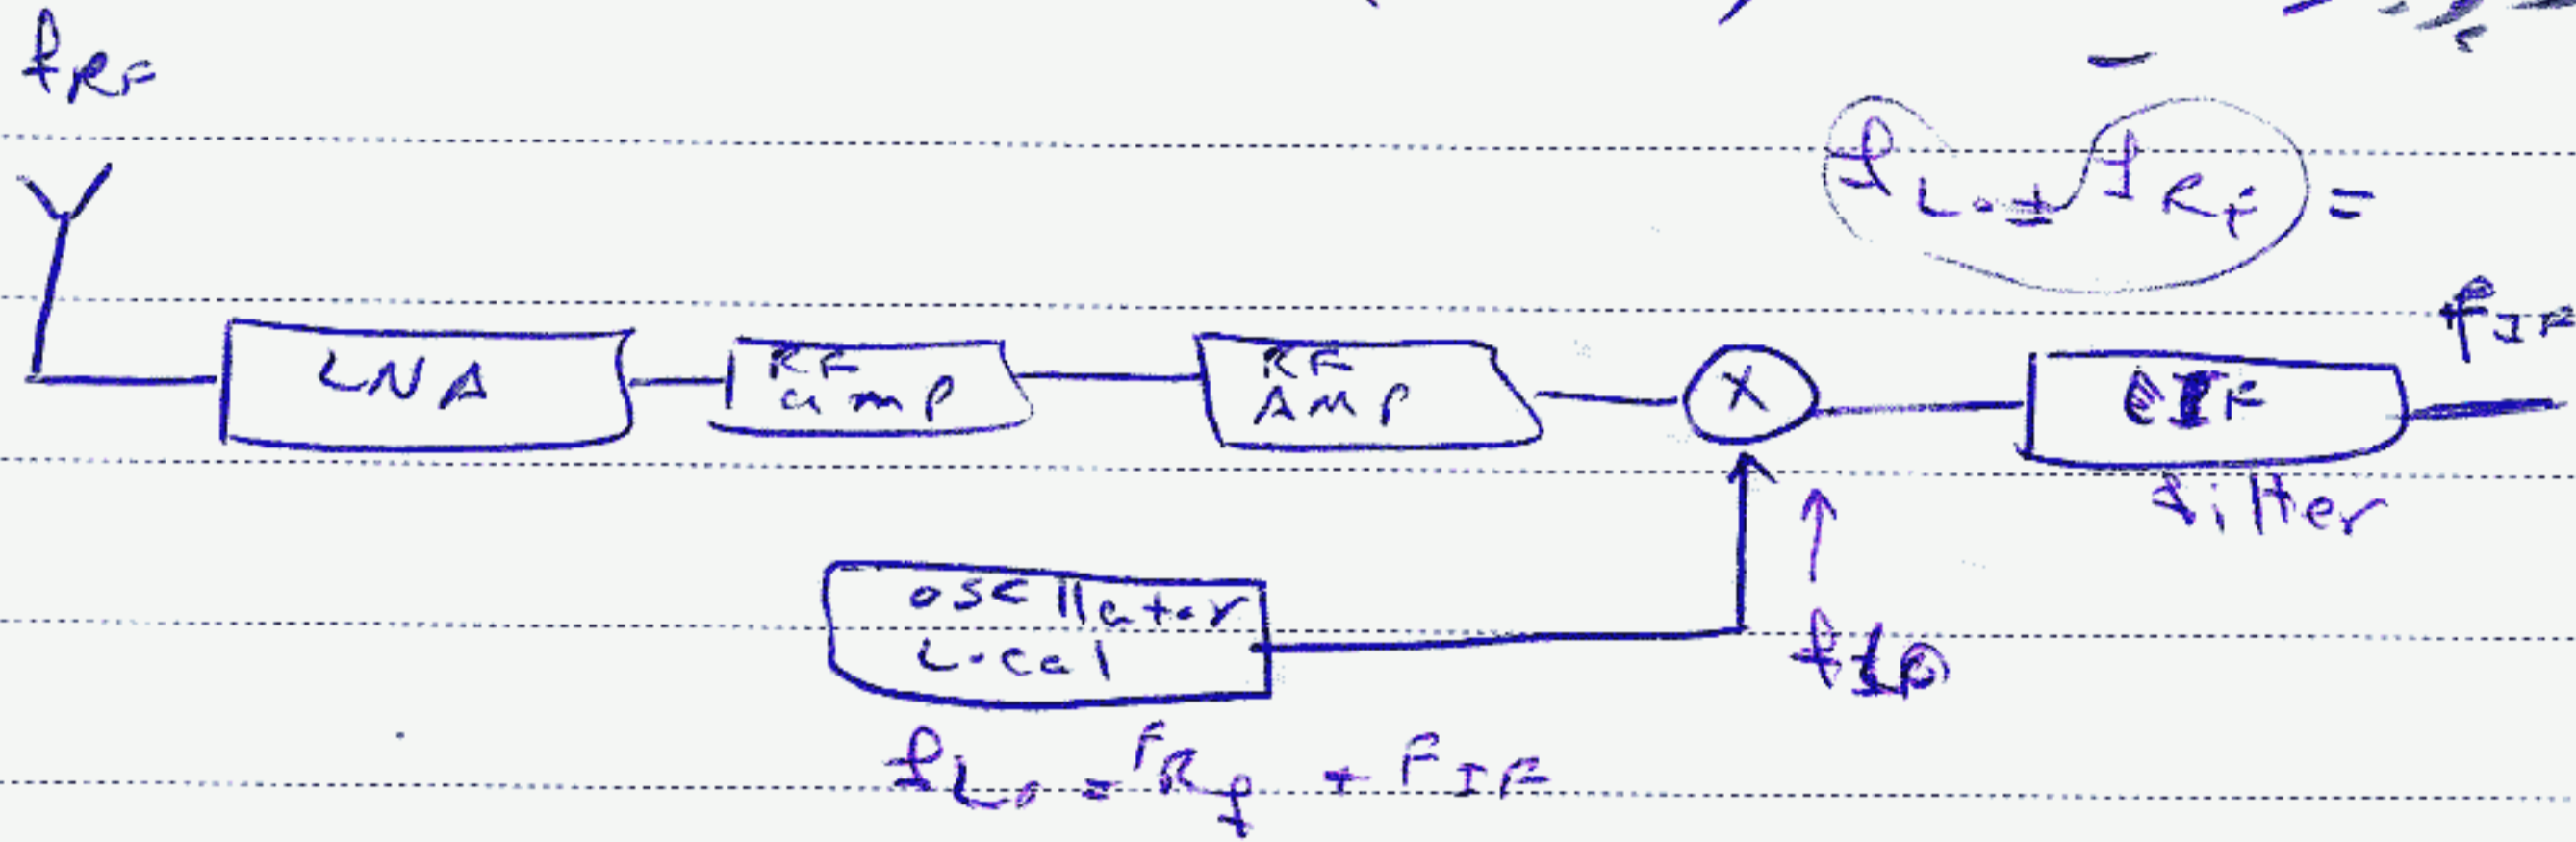 fRF
fLo ± fRF =
fIF
LNA
RF
amp
RF
AMP
X
IF
filter
oscillator
Local
fLo
fLo = FRf + FIF